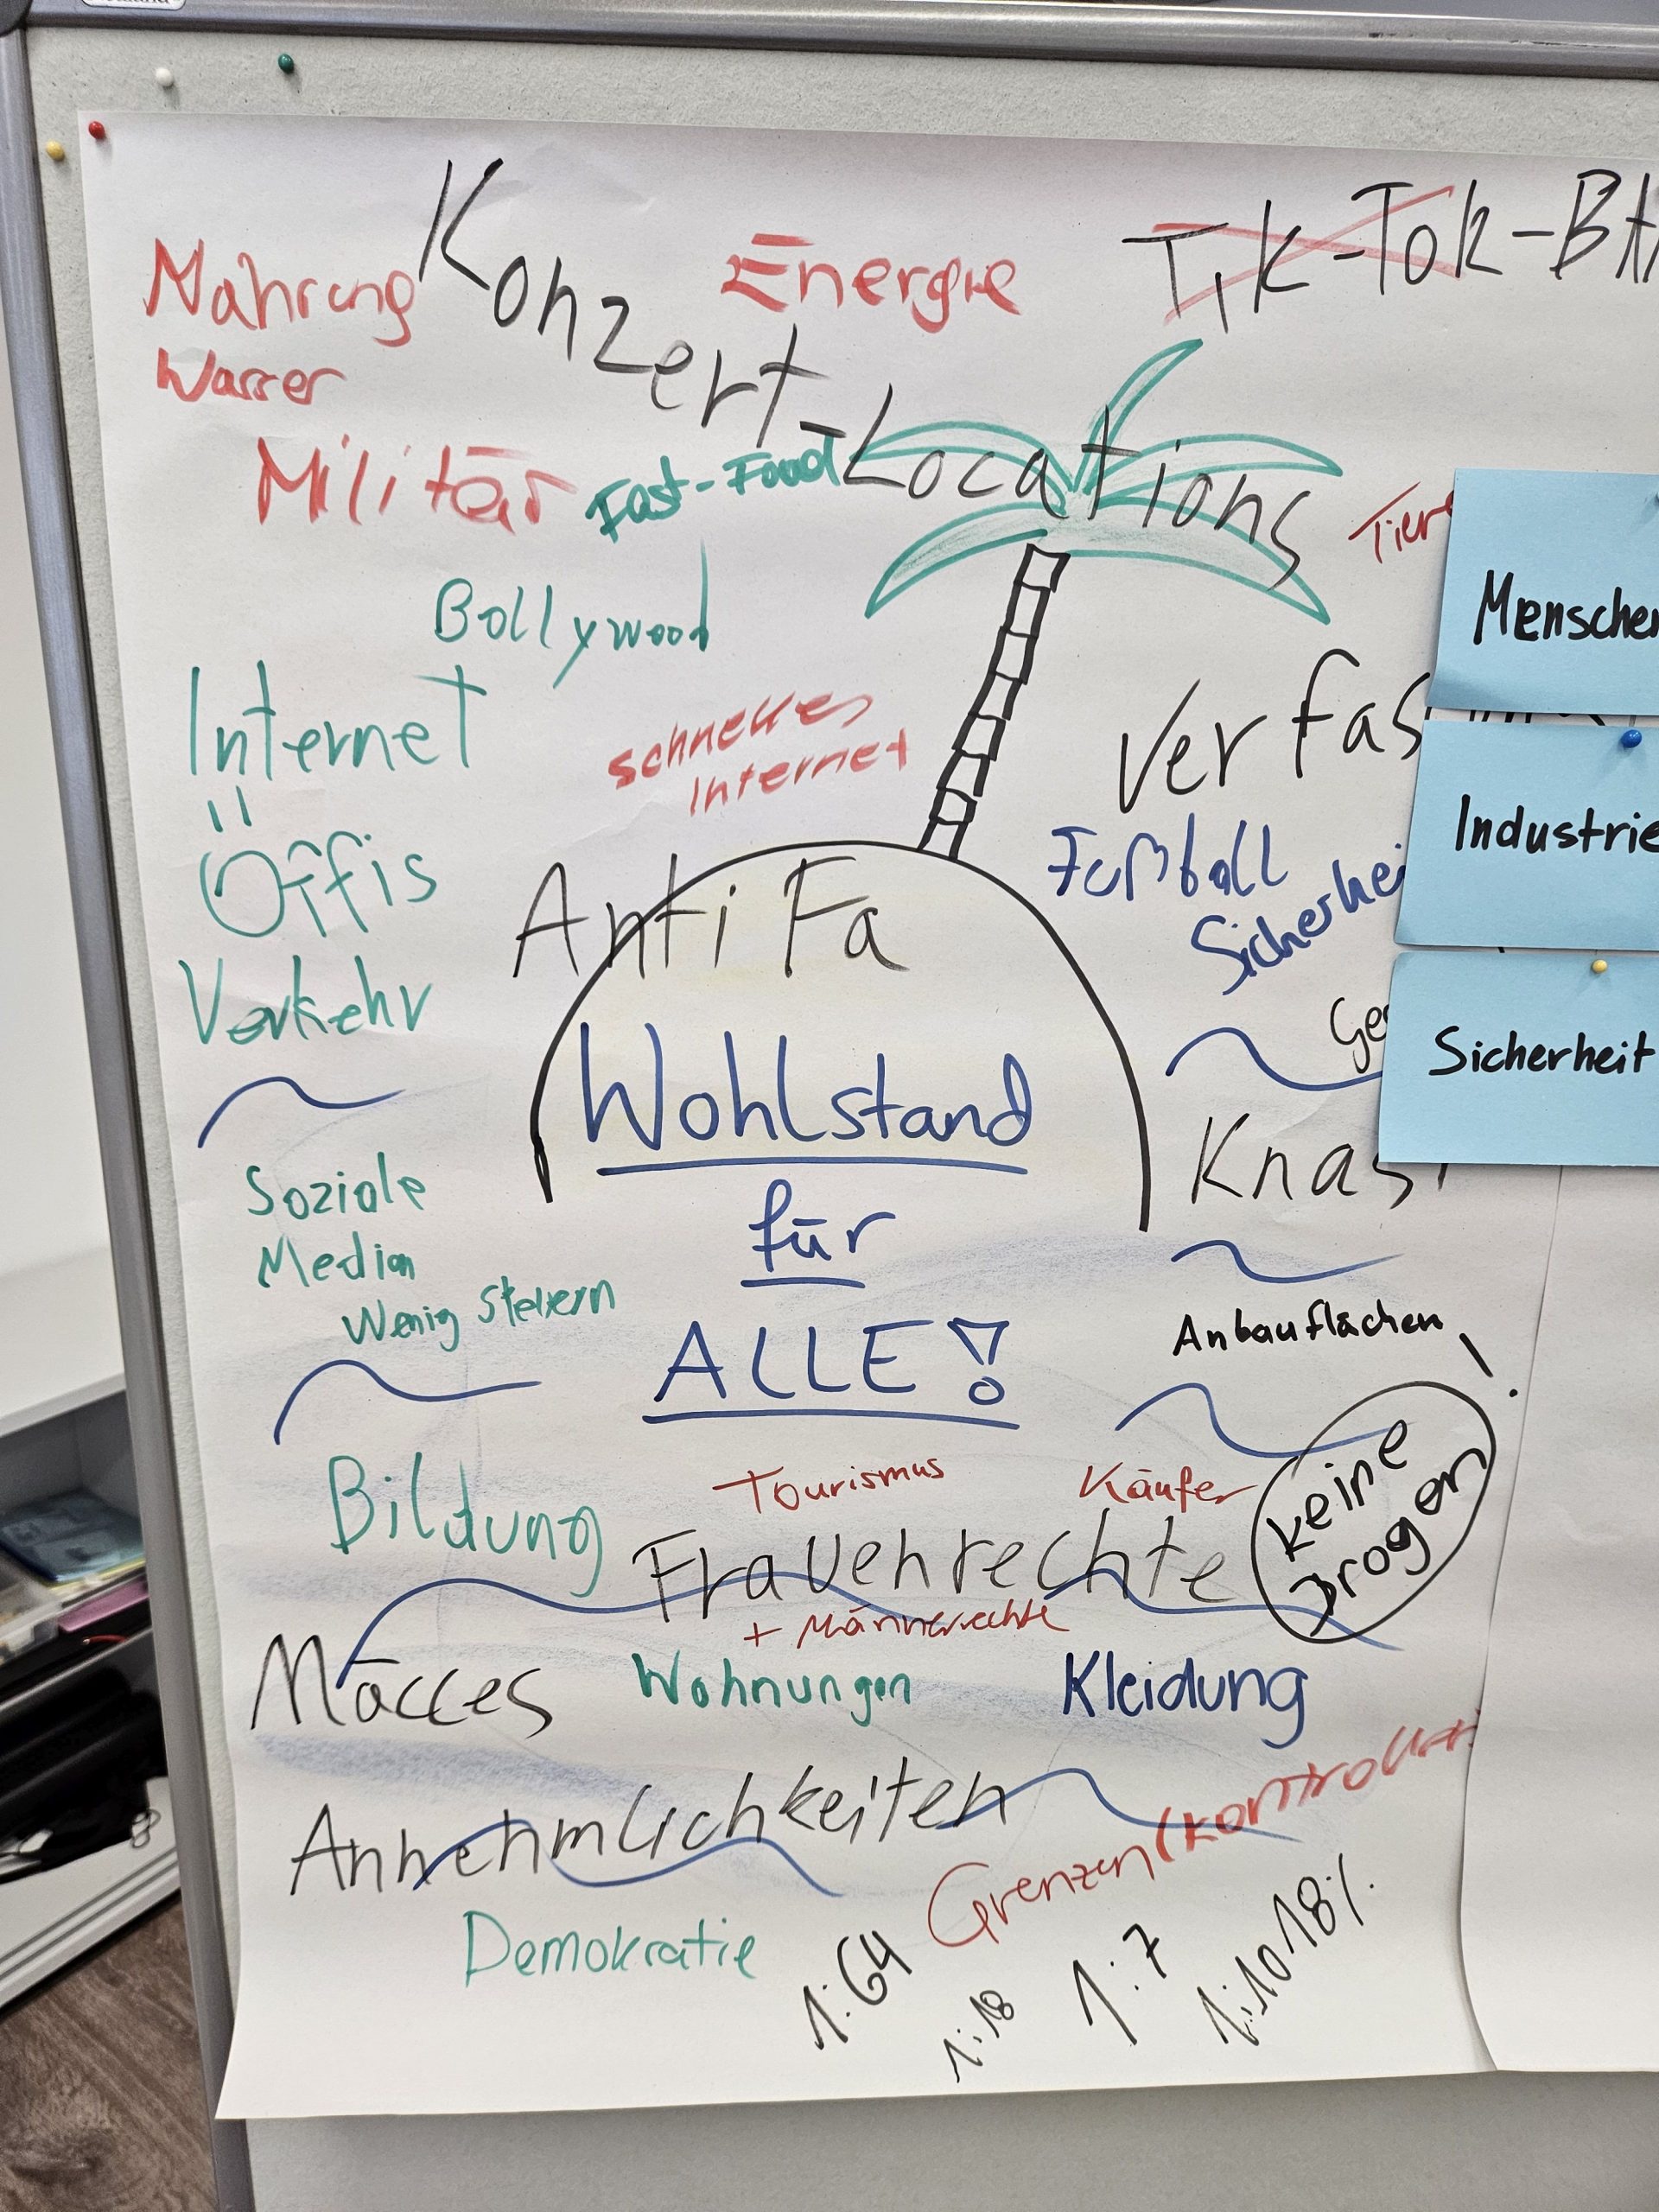 Konzert-Locations
Energie
Tik-Tok-BA
Nahrung
Wasser
Militär
Fast-Food
Tiere
Bollywood
Menschen
Internet
schnelles
Internet
Verfas
Industrie
Öffis
Fußball
Sicherhei
AntiFa
Verkehr
Ges
Sicherheit
Wohlstand
für
ALLE!
Knast
Soziale
Medien
Wenig Steuern
Anbauflächen
keine
Drogen
!
Bildung
Tourismus
Käufer
Frauenrechte
+ Männerrechte
Mäcces
Wohnungen
Kleidung
Annehmlichkeiten
Grenzen(kontrollen
Demokratie
1:64
1:18
1:7
1:10 18%